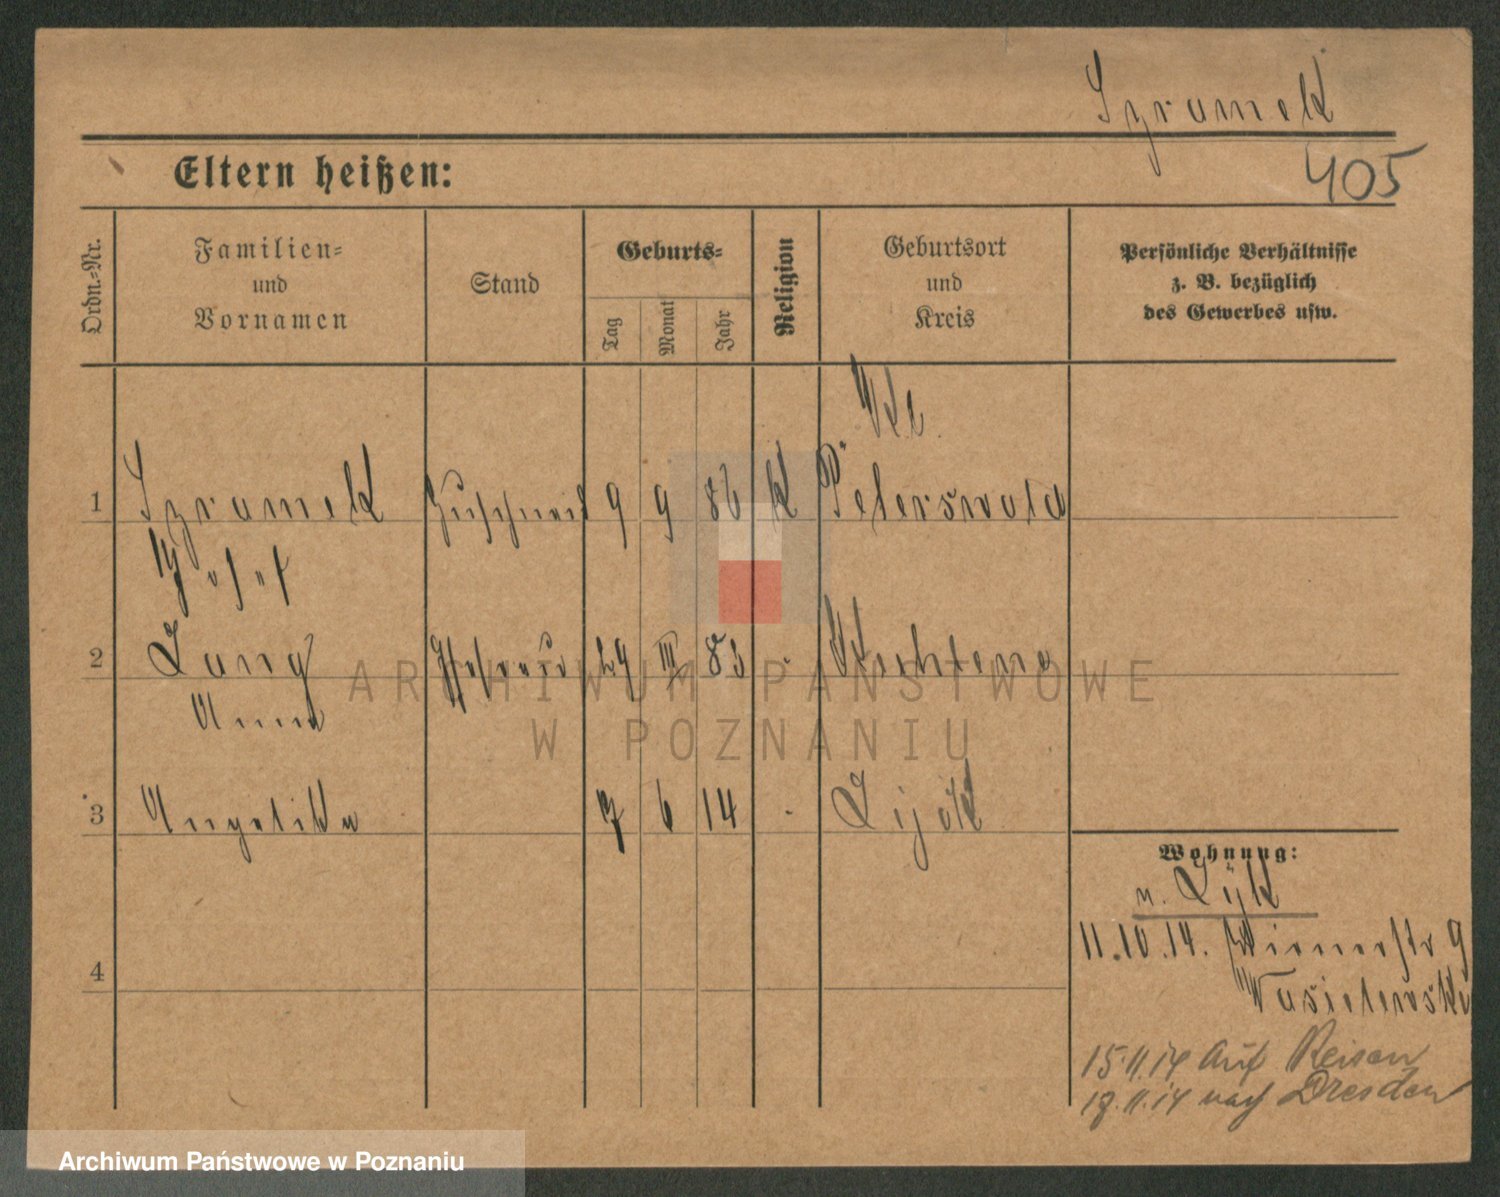 Szramek
405
Eltern heißen:
Ordn.-Nr.
Familien- und Vornamen
Stand
Geburts-
Tag
Monat
Jahr
Religion
Geburtsort und Kreis
Persönliche Verhältnisse z. B. bezüglich des Gewerbes usw.
1 Szramek Zuschneid 9 9 86 K Peterswold
Josef
2 Lang Ehefrau 29 III 83
Anna
3 Angelika 7 6 14 -
4
Wohnung:
n. Lyk
11.10.14. Wienerstr 9
Wasielewski
15.11.14 Auf Reisen
17.11.14 nach Dresden
ARCHIWUM PAŃSTWOWE
W POZNANIU
Archiwum Państwowe w Poznaniu